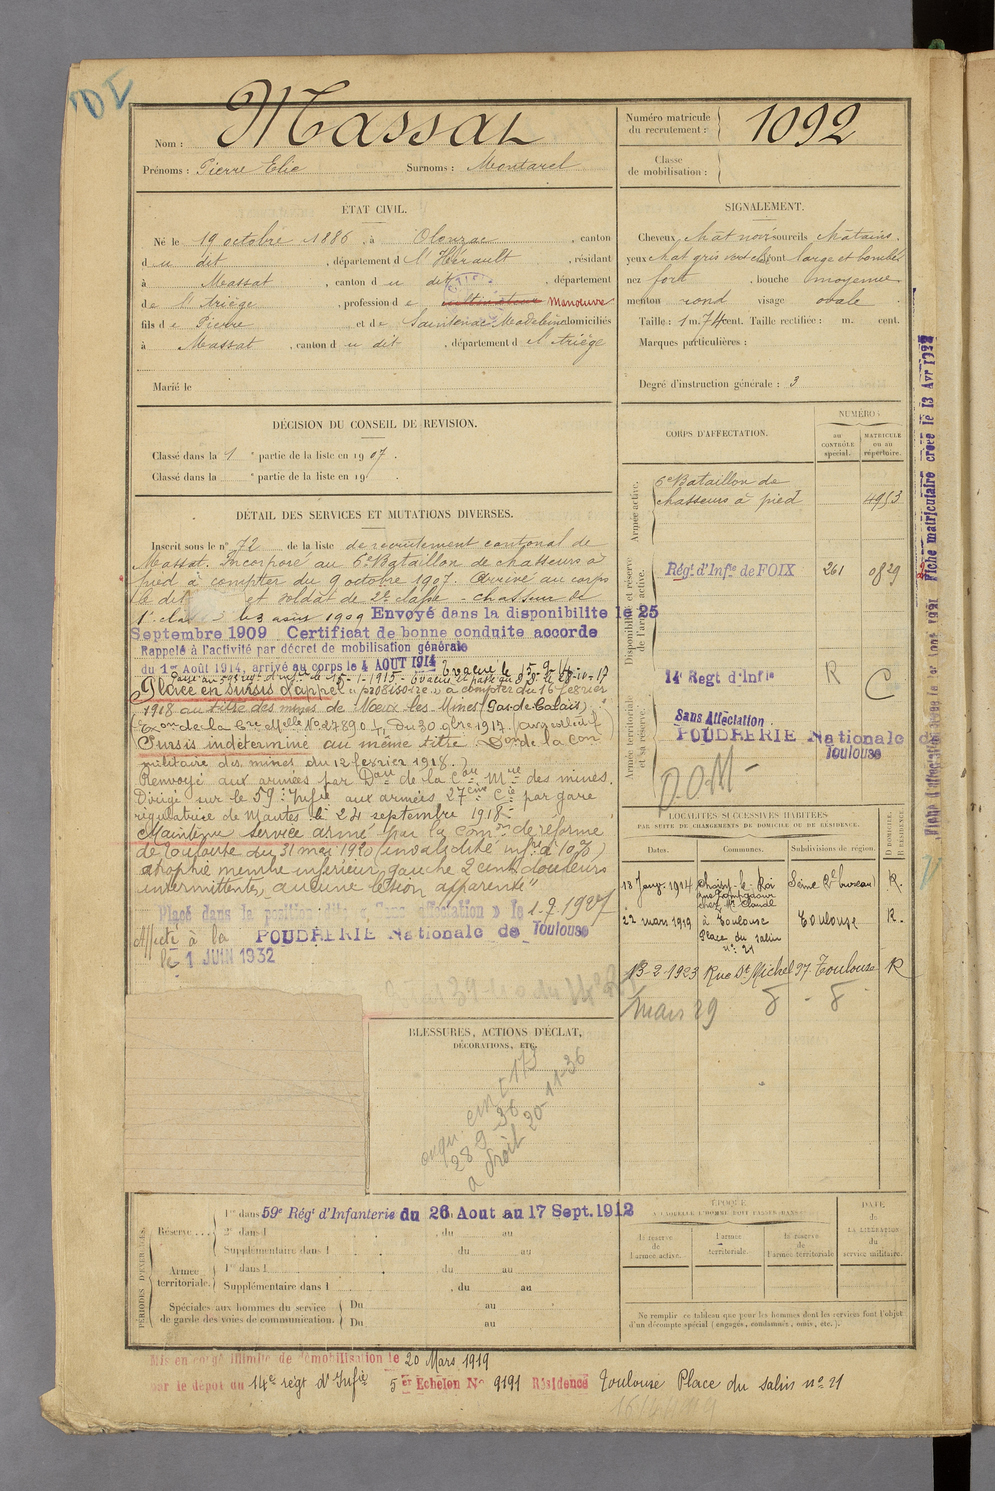 Nom : Massat
Prénoms : Pierre Elie Surnoms : Montarel
Numéro matricule du recrutement : 1092
Classe de mobilisation :
ÉTAT CIVIL.
Né le 19 octobre 1886, à Olonzac, canton
du dit, département de l'Hérault, résidant
à Massat, canton du dit, département
de l'Ariège, profession de cultivateur Manœuvre
fils de Pierre et de Saintenac Madeleine domiciliés
à Massat, canton du dit, département de l'Ariège
Marié le
SIGNALEMENT.
Cheveux chât noir sourcils châtains.
yeux chat gris vert cl front large et bombé
nez fort, bouche moyenne
menton rond visage ovale
Taille : 1 m. 74 cent. Taille rectifiée : m. cent.
Marques particulières :
Degré d'instruction générale : 3
DÉCISION DU CONSEIL DE REVISION.
Classé dans la 1e partie de la liste en 1907.
Classé dans la e partie de la liste en 19 .
DÉTAIL DES SERVICES ET MUTATIONS DIVERSES.
Inscrit sous le n° 72 de la liste de recrutement cantonal de
Massat. Incorporé au 6e Bataillon de chasseurs à
pied à compter du 9 octobre 1907. Arrivé au corps
le dit et soldat de 2e classe. chasseur de
1e classe le 3 août 1909 Envoyé dans la disponibilite le 25
Septembre 1909 Certificat de bonne conduite accorde
Rappelé à l'activité par décret de mobilisation générale
du 1er Août 1914, arrivé au corps le 4 AOUT 1914 Evacué le 15-9-14
Placé en sursis d'appel à compter du 16 février
1918 au titre des mines de Nœux-les-Mines (Pas-de-Calais)
Sursis indéterminé au même titre Don de la Con
militaire des mines du 12 février 1918.)
Renvoyé aux armées par Don de la Con Mre des mines.
Dirigé sur le 59e Infie aux armées 27ème Cie par gare
régulatrice de Mantes le 24 septembre 1918
Maintenu service armé par la Comon de réforme
de Toulouse du 31 mai 1920 (invalidité infre à 10%)
atrophie membre inférieur gauche 2 cent. douleurs
intermittentes, aucune lésion apparente"
Placé dans la position dite « Sans affectation » le 1.9.1927
Affecté à la POUDRERIE Nationale de Toulouse
le 1 JUIN 1932
CORPS D'AFFECTATION.
NUMÉROS
au contrôle spécial.
MATRICULE ou au répertoire.
Armée active.
6e Bataillon de chasseurs à pied 4953
Disponibilité et réserve de l'armée active.
Régt d'Infie de FOIX 261 0829
14e Regt d'Infie R C
Armée territoriale et sa réserve.
Sans Affectation
POUDRERIE Nationale de
Toulouse
D.O.M
Fiche matriculaire créée le 13 Avr 1932
LOCALITÉS SUCCESSIVES HABITÉES
PAR SUITE DE CHANGEMENTS DE DOMICILE OU DE RÉSIDENCE.
Dates. Communes. Subdivisions de région. D DOMICILE. R RÉSIDENCE
18 Janv. 1914 Choisy-le-Roi Seine (2e bureau) R.
22 mars 1919 à Toulouse Place du Salin n° 21 Toulouse R.
13-2-1923 Rue St Michel 97 Toulouse R
Mars 29
BLESSURES, ACTIONS D'ÉCLAT,
DÉCORATIONS, ETC.
28 9-36
20-11-36
PÉRIODES D'EXERCICES
Réserve.... 1re dans l 59e Régt d'Infanterie du 26 Aout au 17 Sept. 1912
2e dans l , du au
Supplémentaire dans l , du au
Armée territoriale. 1re dans l , du au
Supplémentaire dans l , du au
Spéciales aux hommes du service de garde des voies de communication. Du au
Du au
ÉPOQUE
À LAQUELLE L'HOMME DOIT PASSER DANS
la réserve de l'armée active.
l'armée territoriale.
la réserve de l'armée territoriale
DATE de LA LIBÉRATION du service militaire.
Ne remplir ce tableau que pour les hommes dont les services font l'objet
d'un décompte spécial (engagés, condamnés, omis, etc.).
Mis en congé illimité de démobilisation le 20 Mars 1919
par le dépôt du 14e régt d'Infie 5er Echelon N° 9191 Résidence Toulouse Place du Salin n° 21